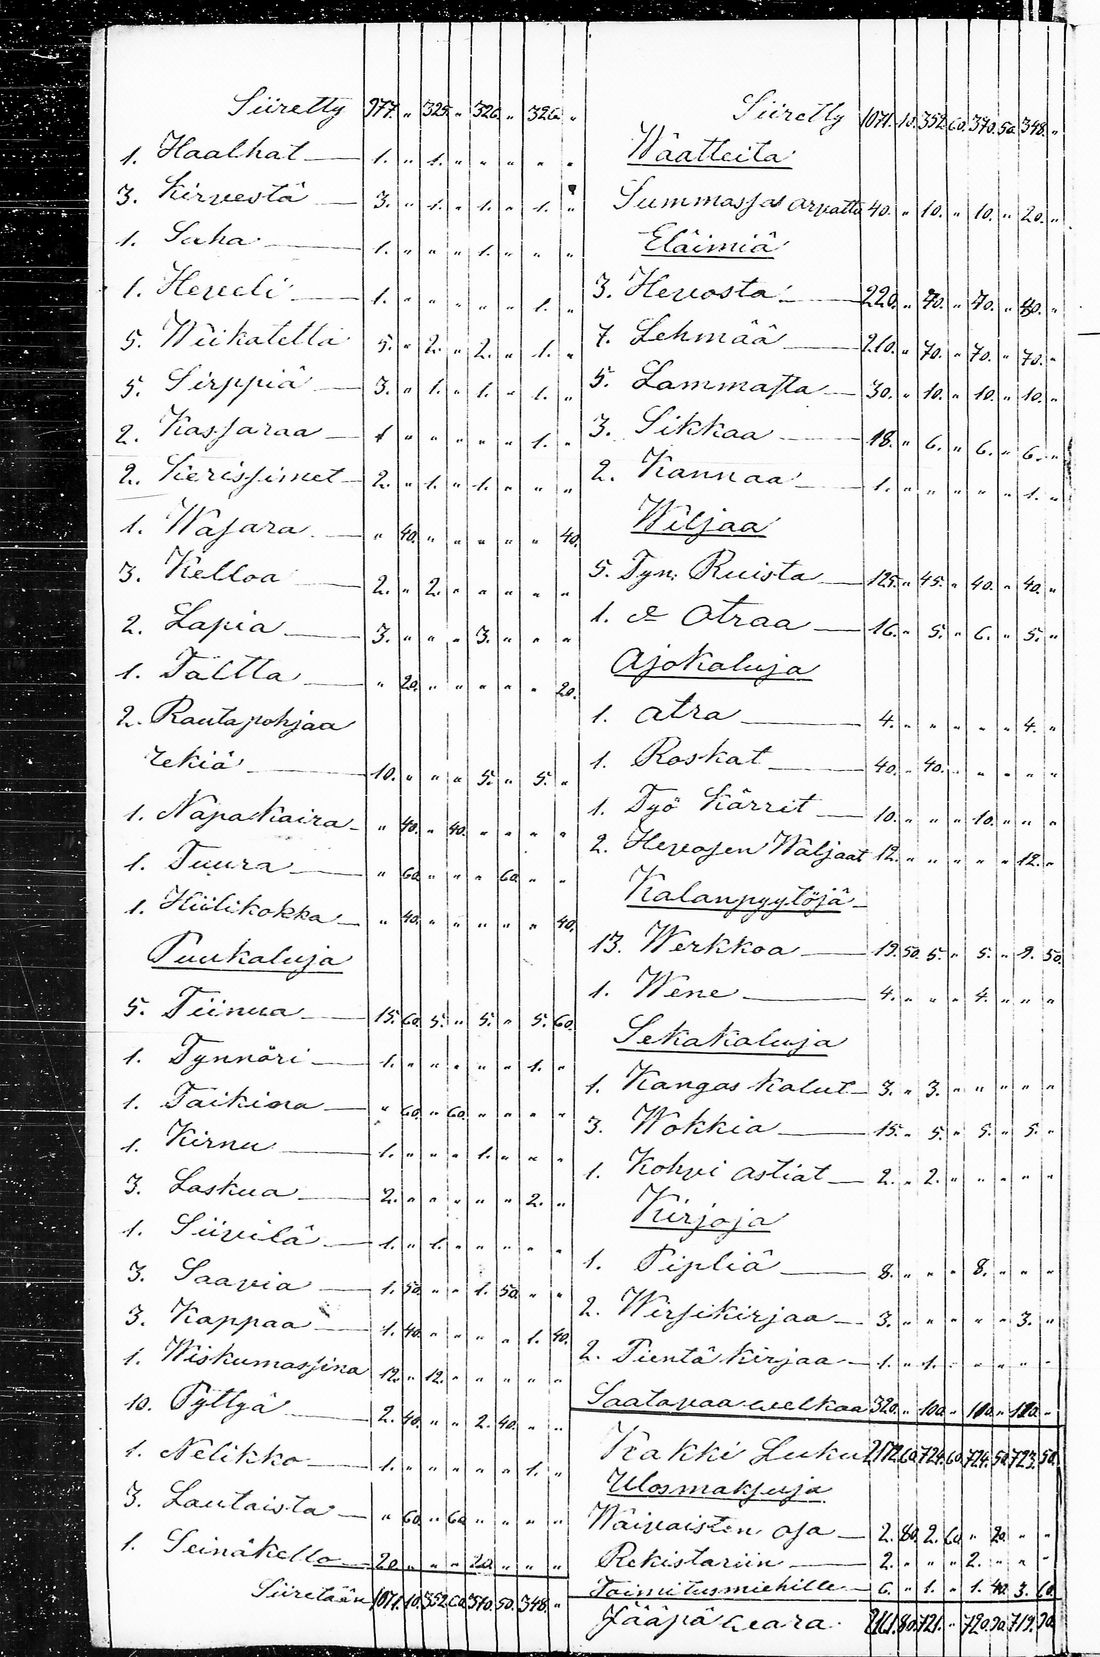 Siiretty 977. „ 325. „ 326. „ 326. „
1. Haalhat 1. „ 1. „ „ „ „ „
3. Kirvestä 3. „ 1. „ 1. „ 1. „
1. Saha 1. „ „ „ 1. „ „ „
1. Heveli 1. „ „ „ „ „ 1. „
5. Wiikatetta 5. „ 2. „ 2. „ 1. „
5. Sirppiä 3. „ 1. „ 1. „ 1. „
2. Kassaraa 1 „ „ „ „ „ 1. „
2. Kerissimet 2. „ 1. „ 1. „ „ „
1. Wasara „ 40. „ „ „ „ „ 40.
3. Kelloa 2. „ 2. „ „ „ „ „
2. Lapia 3. „ „ „ 3. „ „ „
1. Tältta „ 20. „ „ „ „ „ 20.
2. Rautapohjaa
rekiä 10. „ „ „ 5. „ 5. „
1. Napakaira „ 40. „ 40. „ „ „ „
1. Tuura „ 60. „ „ „ 60. „ „
1. Hiilikokka „ 40. „ „ „ „ „ 40.
Puukaluja
5. Tiinua 15. 60. 5. „ 5. „ 5. 60.
1. Tynnöri 1. „ „ „ „ „ 1. „
1. Taikina „ 60. „ 60. „ „ „ „
1. Kirnu 1. „ „ „ 1. „ „ „
3. Laskua 2. „ „ „ „ „ 2. „
1. Siivilä 1. „ 1. „ „ „ „ „
3. Saavia 1. 50. „ „ 1. 50. „ „
3. Kappaa 1. 40. „ „ „ „ 1. 40.
1. Wiskumassina 12. „ 12. „ „ „ „ „
10. Pyttyä 2. 40. „ „ 2. 40. „ „
1. Nelikko 1. „ „ „ „ „ 1. „
3. Lautaista „ 60. „ 60. „ „ „ „
1. Seinäkello 20. „ „ „ 20. „ „ „
Siiretään 1071. 10. 352. 60. 370. 50. 348. „
Siiretty 1071. 10. 352. 60. 370. 50. 348. „
Wäatteita
Summassas arvattu 40. „ 10. „ 10. „ 20. „
Eläimiä
3. Hevosta 220. „ 70. „ 70. „ 80. „
7. Lehmää 210. „ 70. „ 70. „ 70. „
5. Lammasta 30. „ 10. „ 10. „ 10. „
3. Sikkaa 18. „ 6. „ 6. „ 6. „
2. Kannaa 1. „ „ „ „ „ 1. „
Wiljaa
5. Tyn: Ruista 125. „ 45. „ 40. „ 40. „
1. d:o Otraa 16. „ 5. „ 6. „ 5. „
Ajokaluja
1. atra 4. „ „ „ „ „ 4. „
1. Roskat 40. „ 40. „ „ „ „ „
1. Työ Kärrit 10. „ „ „ 10. „ „ „
2. Hevosen Waljaat 12. „ „ „ „ „ 12. „
Kalanpyytöjä
13. Werkkoa 19. 50. 5. „ 5. „ 9. 50.
1. Wene 4. „ „ „ 4. „ „ „
Sekakaluja
1. Kangas kalut 3. „ 3. „ „ „ „ „
3. Wokkia 15. „ 5. „ 5. „ 5. „
1. Kohvi astiat 2. „ 2. „ „ „ „ „
Kirjoja
1. Pipliä 8. „ „ „ 8. „ „ „
2. Wirsikirjaa 3. „ „ „ „ „ 3. „
2. Pientä kirjaa 1. „ 1. „ „ „ „ „
Saatavaa welkaa 320. „ 100. „ 110. „ 110. „
Kakki Luku 2172. 60. 724. 60. 724. 50. 723. 50.
Ulosmaksuja
Wäivaisten osa 2. 80. 2. 60. „ 20. „ „
Rekistariin 2. „ „ „ 2. „ „ „
Toimitusmiehille 6. „ 1. „ 1. 40. 3. 60.
Jääpä waara 2161. 80. 721. „ 720. 90. 719. 90.